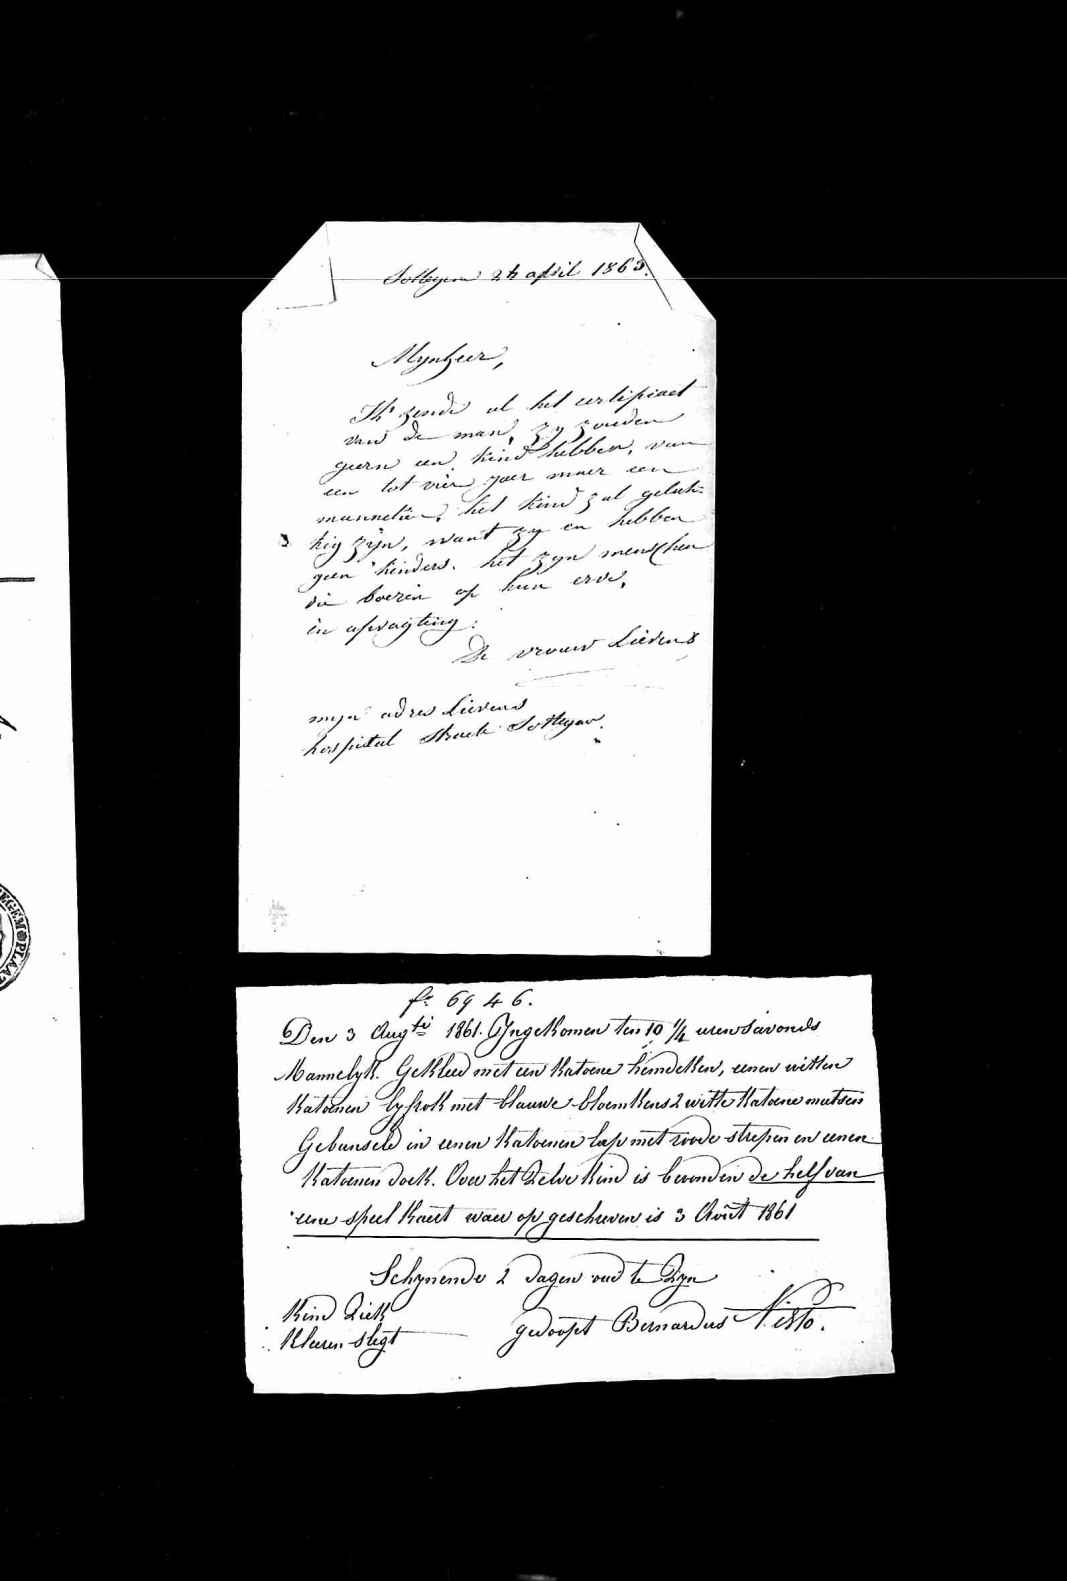 Sottegem 24 april 1863.
Mynheer,
Ik zende ul het certifiaet
van de man, zy zouden
geern een kind hebben, van
een tot vier jaer maer een
mannelie, het kind zal geluk-
kig zijn, want zy en hebben
geen kinders. het zyn menschen
die boeren op hun erve,
in afvagting:
De vrouw Lievens
myn adres Lievens
hospitael Straete Sotteyem.
EGEM PLAAT
fo 6946.
Den 3 Augti 1861. Ingekomen ten 10 1/4 uren savonds
Mannelyk. Gekleed met een Katoene hemdeken, eenen witten
Katoenen lyfrok met blauwe bloemkens 2 witte Katoene mutsen
Gebunseld in eenen Katoenen lap met roode strepen en eenen
Katoenen doek. Over het Zelve Kind is bevonden de helf van
eene speel Kaert waer op geschreven is 3 Août 1861
Schynende 2 dagen oud te Zyn
Kind Ziek
Kleeren slegt
gedoopt Bernardus Nisto.